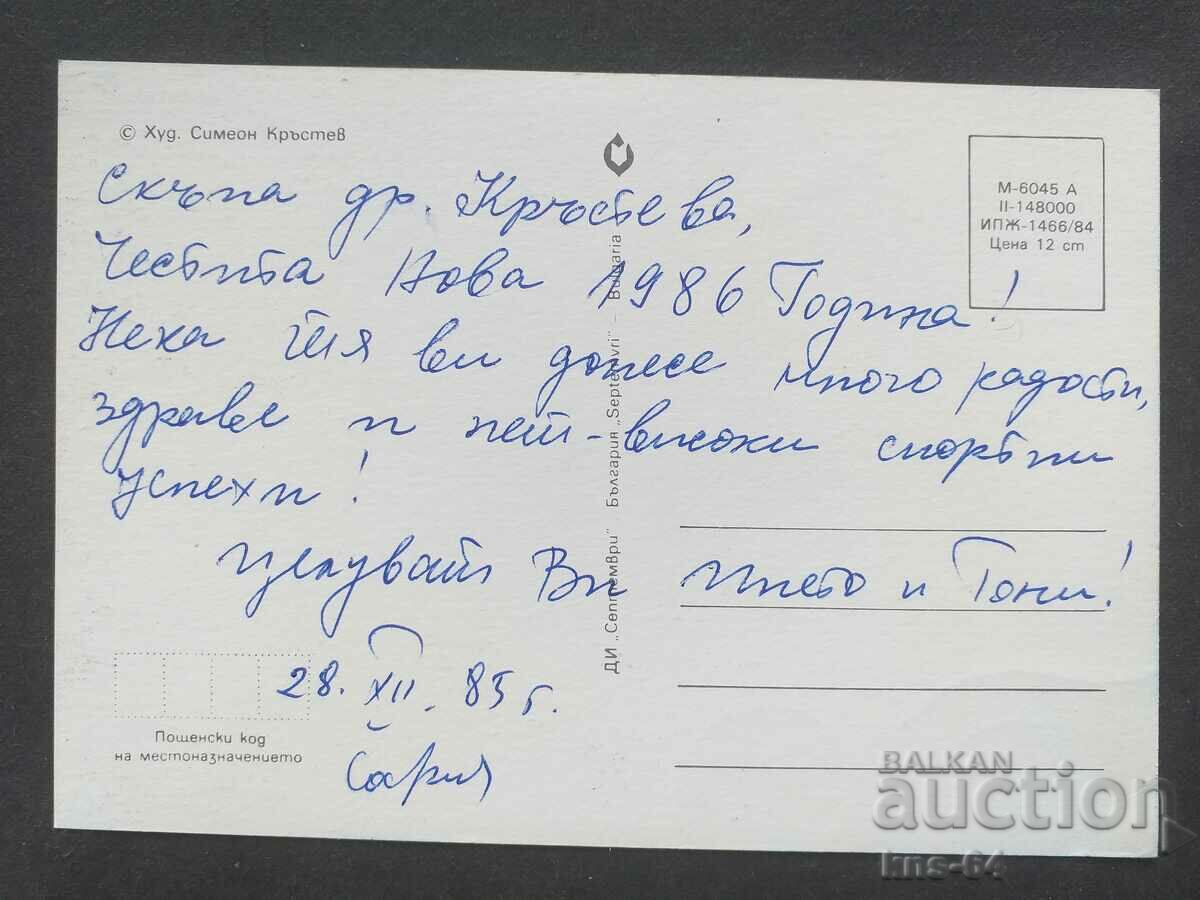 © Худ. Симеон Кръстев
М-6045 А
II-148000
ИПЖ-1466/84
Цена 12 ст
Скъпа др. Кръстева,
Честита Нова 1986 Година!
Нека тя ви донесе много радости,
здраве и най-високи спортни
успехи!
Целуват Ви и Тони!
28. XII. 85 г.
София
Пощенски код
на местоназначението
ДИ „Септември" България „Septemvri" - Bulgaria
BALKAN
auction
kns-64